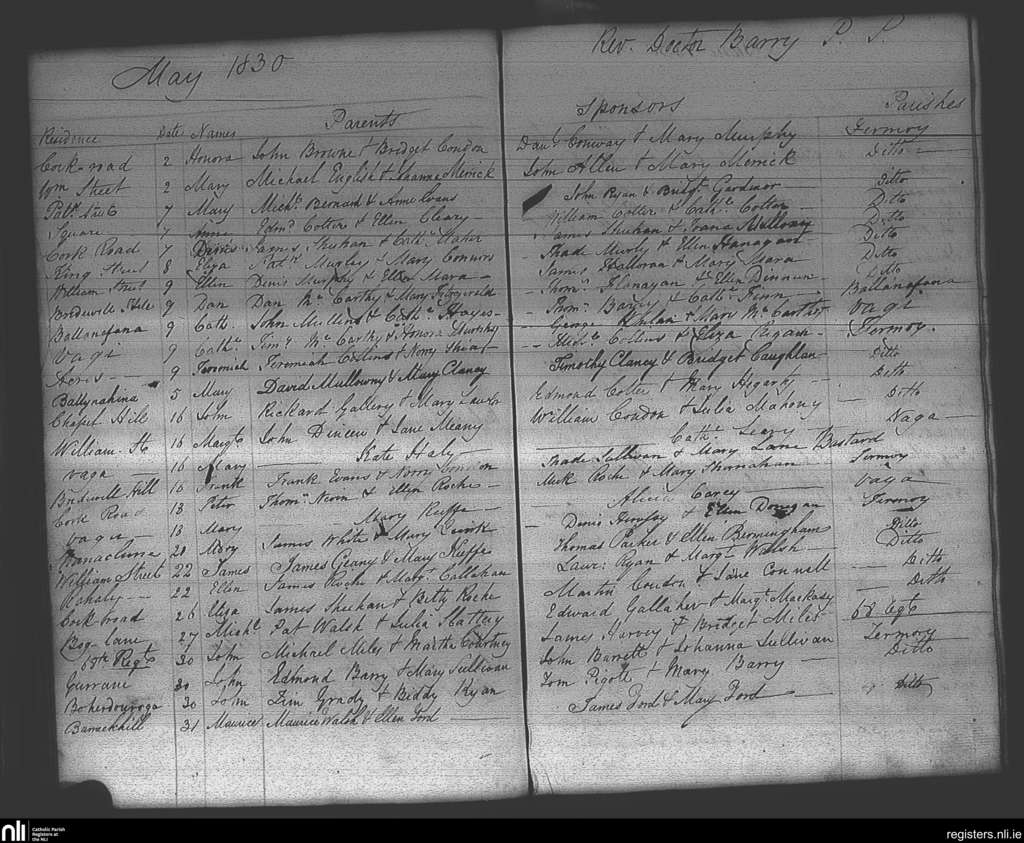 May 1830
Rev. Doctor Barry P. P.
Residence Date Names Parents Sponsors Parishes
Cork road 2 Honora John Browne & Bridget Condon Danl Conway & Mary Murphy Fermoy
Wm Street 2 Mary Michael English & Johanna Merrick John Allen & Mary Merrick Ditto
Patk Street 7 Mary Michl Bernard & Anne Evans John Ryan & Bridgt Gardiner Ditto
Square 7 Edmd Cotter & Ellen Cleary William Cotter & Cathe Cotter Ditto
Cork Road 7 James Sheehan & Cathe James Sheehan & Joana Mulloney Ditto
King Street 8 Eliza Patk & Mary Connors Thade & Ellen Hanagan Ditto
William Street 9 Ellin Denis Murphy & Ellen Mara James Halloran & Mary Mara Ditto
Bridewell Hill 9 Dan Dan Mc Carthy & Mary Fitzgerald Thoms Flanagan & Ellen Dinneen Ditto
Ballanafana 9 Cath. John Mullins & Cathe Hayes Thoms Barry & Cathe Finn Ballanafana
Vagi 9 Cathe Timy Mc Carthy & Honora Murphy George & Mary Mc Carthy Vagi
Acres 9 Jeremiah Jeremiah Collins & Norry Michl Collins & Eliza Fermoy
Ballynahina 5 Mary David Mullowny & Mary Clancy Timothy Clancy & Bridget Caughlan Ditto
Chapel Hill 16 John Rickard Gallery & Mary Edmond Cotter & Mary Hegarty Ditto
William St 16 Margt John Dineen & Jane Meany William Condon & Julia Mahony Ditto
vaga 16 Mary Kate Haly Cathe Leary Vaga
Bridewell Hill 16 Frank Frank Evans & Norry Condon Thade Sullivan & Mary Lane Bastard
Cork Road 18 Peter Thoms & Ellen Roche Mick Roche & Mary Shanahan Fermoy
vaga 18 Mary Mary Keeffe Alicia Carey Vaga
20 Mary James White & Mary Quirk Denis & Ellen Donegan Fermoy
William Street 22 James James Geany & Mary Keeffe Thomas Parker & Ellen Bermingham Ditto
22 Ellen James Roche & Margt Callahan Laur: Ryan & Margt Walsh Ditto
Cork road 26 Eliza James Sheehan & Betty Roche Martin Condon & Jane Connell Ditto
Bog lane 27 Michl Pat Walsh & Julia Slattery Edward Gallaher & Margt Mackasy Ditto
68th Regt 30 John Michael Miles & Martha Courtney James Harvey & Bridget Miles 68 Regt
Gurrane 30 John Edmond Barry & Mary Sullivan John Barrett & Johanna Sullivan Fermoy
30 John Tim Grady & Biddy Ryan Tom Pigott & Mary Barry Ditto
Barrackhill 31 Maurice Maurice Walsh & Ellen Ford James Ford & Mary Ford Ditto
nli Catholic Parish
Registers at
the NLI
registers.nli.ie